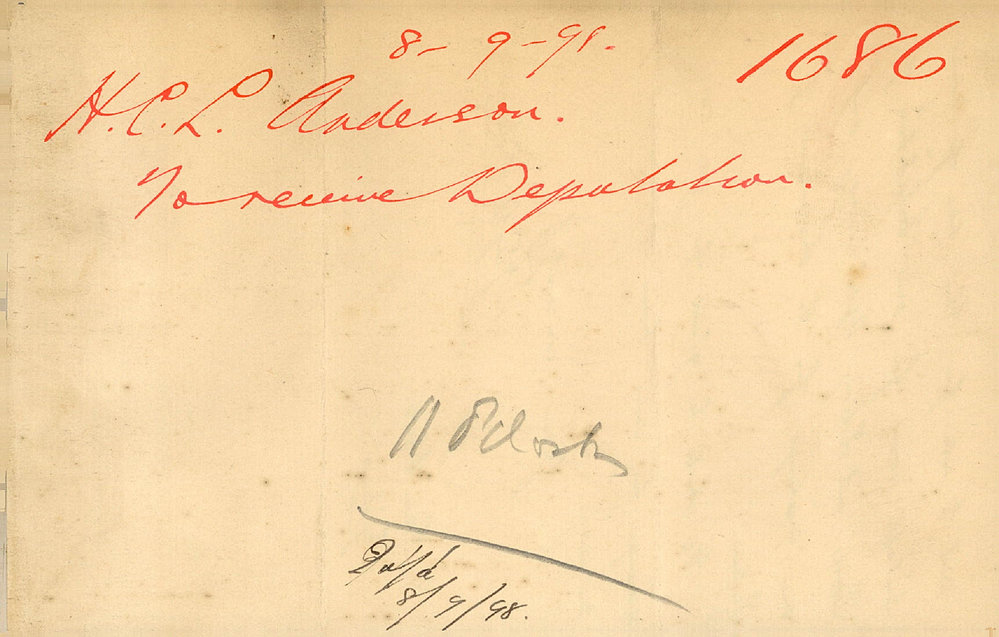 8-9-98. 1686
H.C.L. Anderson.
To receive Deputation.
11 O'Clock
8/9/98.